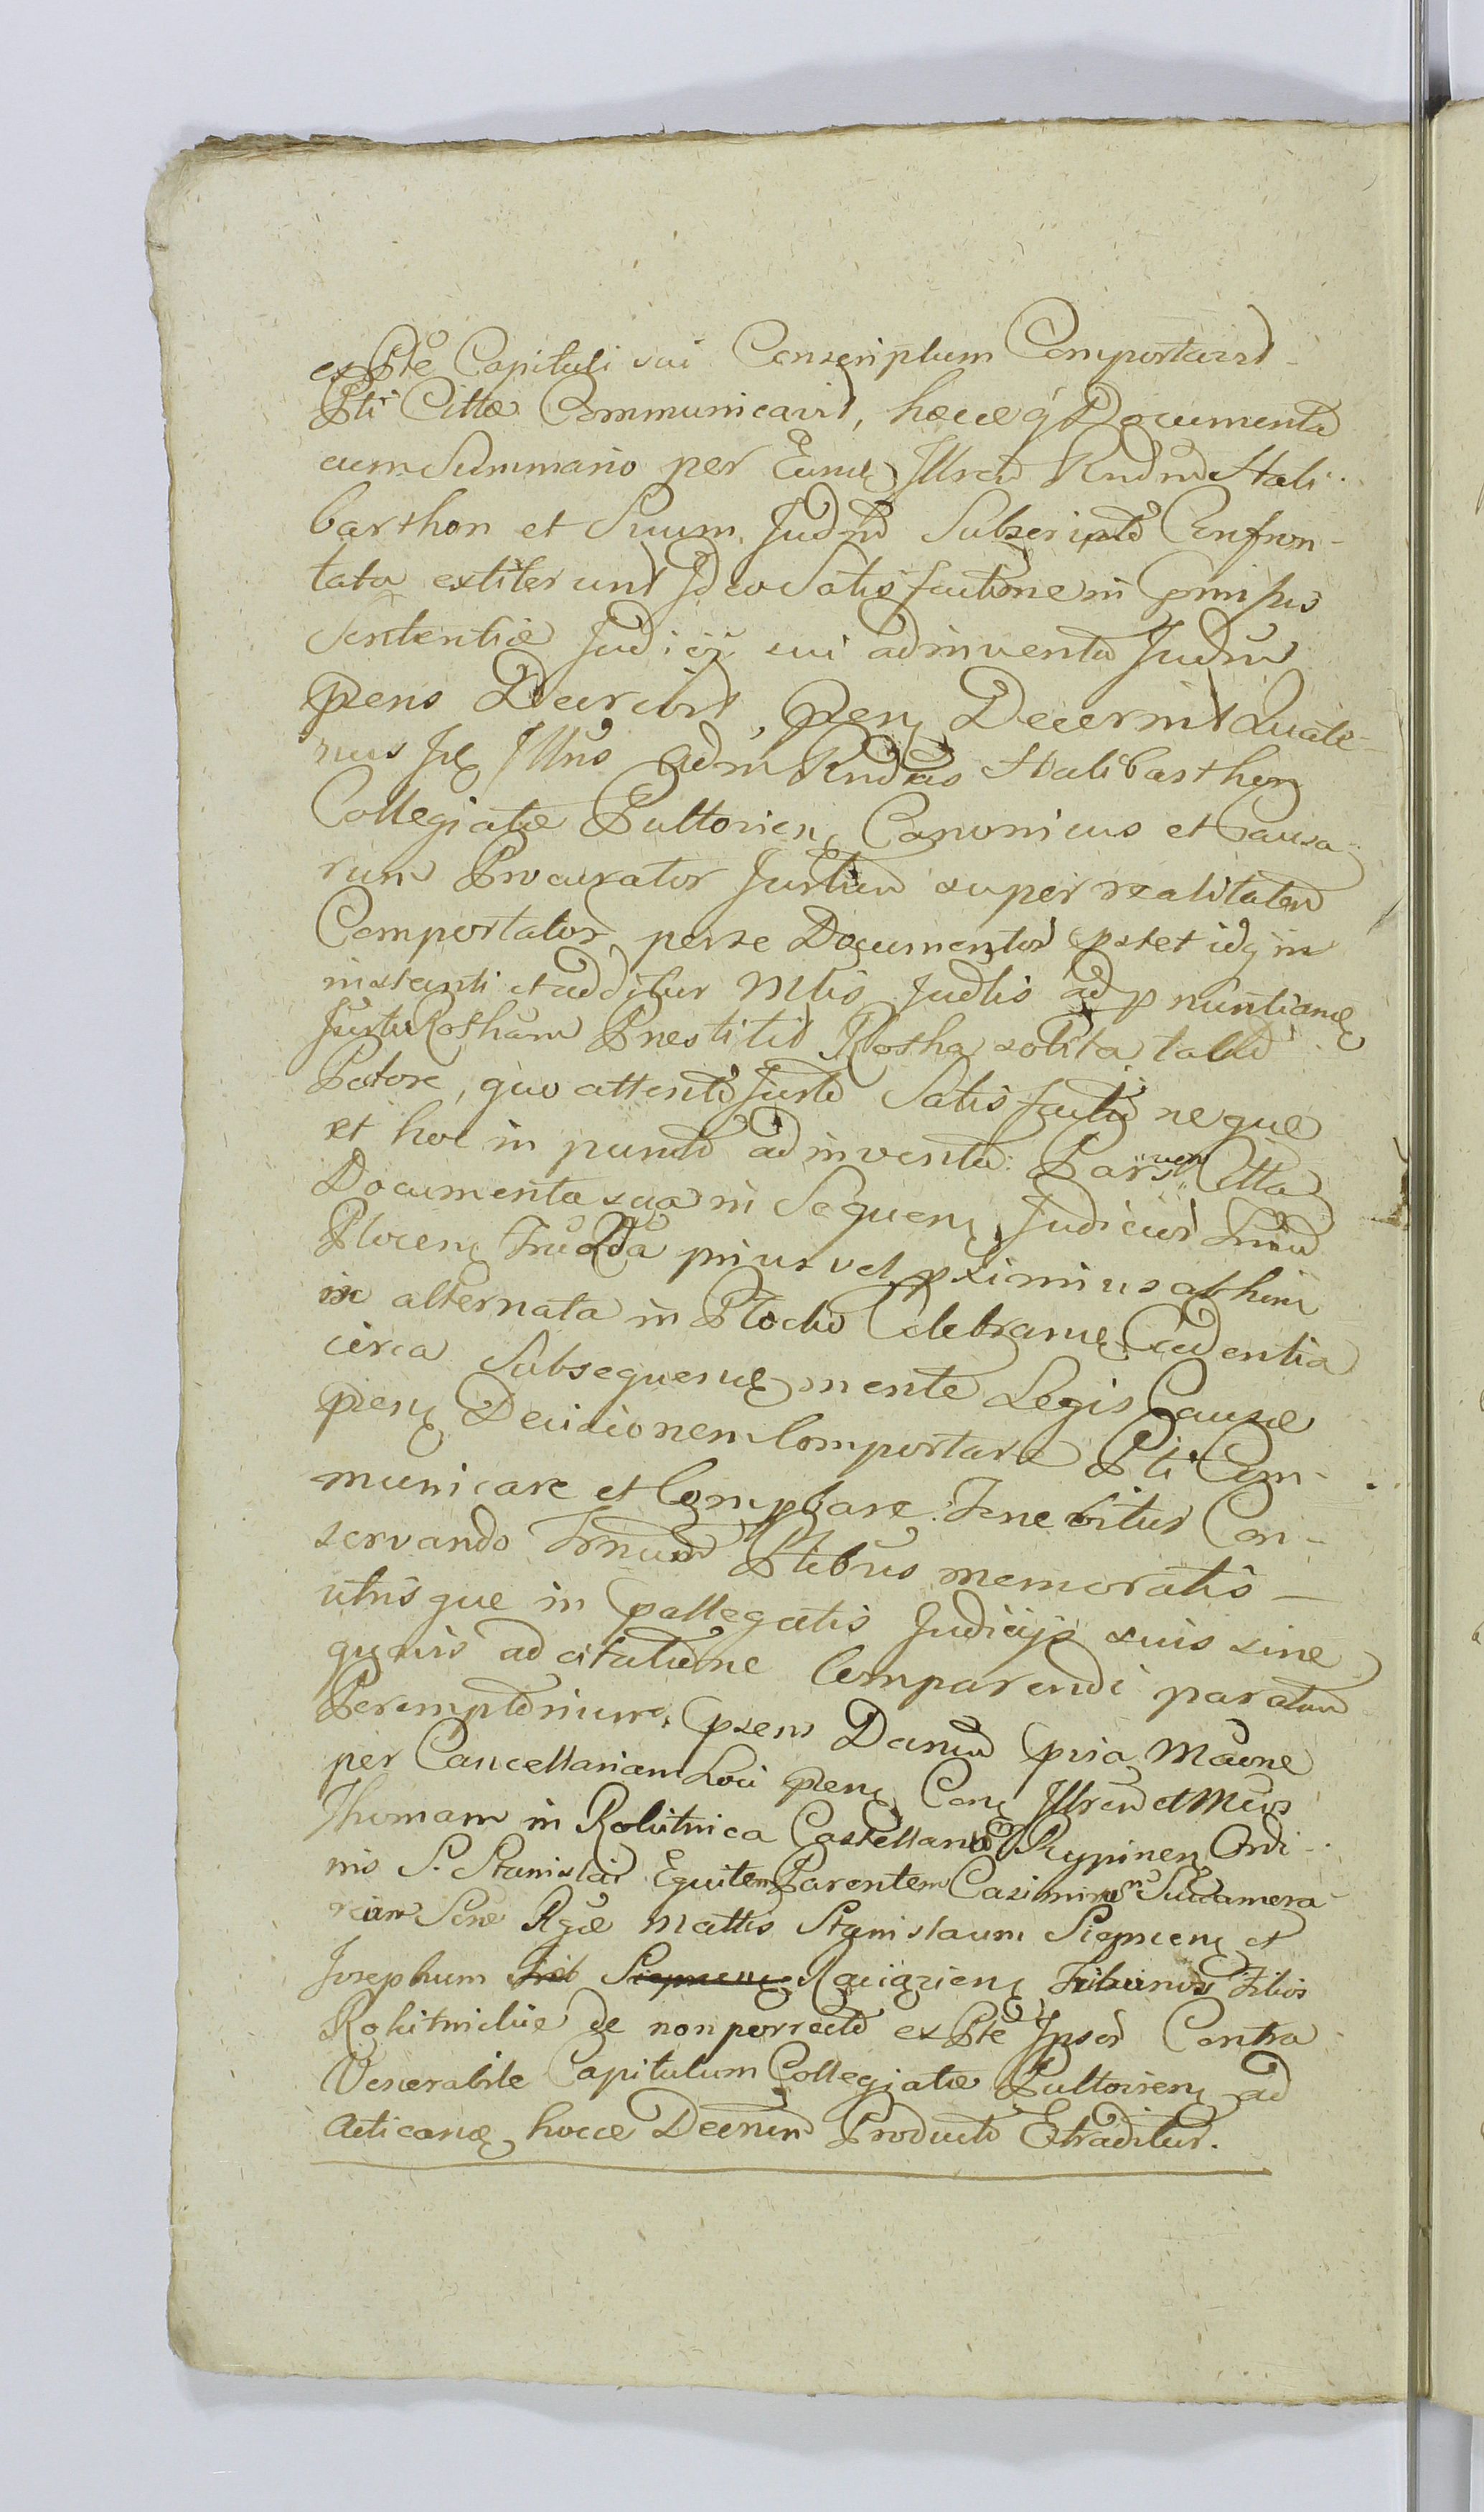 ex Pte Capituli sui Conscriptum Comportavit
Pti Cittæ Communicavit, hæcce q Documenta
cum Summario per Eund Illrem Rndm Hali-
barthon et Suum Judm Subscripto Confron-
tata extiterunt Ideo Satisfactione in Compus
Sententiæ Judicij sui adinventa Judm
præns Decrevit, præn Decernit Quate-
nus Is Illris Adm Rndus Halibarthon
Collegiatæ Pultovien Canonicus et Causa-
rum Procurator Jurtum super realitatem
Comportator perse Documentor pstet idq in
instanti et additur Mtis Judlis ad pnuntiand
Jurtu Rotham Prestitit Rotha solita talu
Patore, quo attento Jurto Satisfactu neque
et hoc in puncto adinventa. Pars vero Citta
Documenta sua in Sequen Judicior
Plocen prius vel pximius ab hinc
in alternata in Plocko Celebrand Cadentia
circa Subsequend mente Legis Causæ
præn Decisionem Comportare Pti Com-
municare et Comprobare Tenebitur Con-
servando Trnum Ptibus memoratis
utrisque in pallegatis Judicijs suis sine
quavis adcitatione Comparendi paratum
Peremptorium, præns Danum pria Maone
per Cancellariam Loci præn Con Illrem et Mcos
Thomam in Rokitnica Castellanum Rypinen Ordi-
nis S. Stanislai Equitem Parentem Casimirum Succamera-
rium Scræ Rgæ Mattis Stanislaum Siepricen et
Josephum Trib Siepricen Raciązien Tribunos Filios
Rokitnickie de non porrecto ex Pte Ipsor Contra
Venerabile Capitulum Collegiatæ Pultovien ad
acticand hocce Decrtum Producto Extraditur.